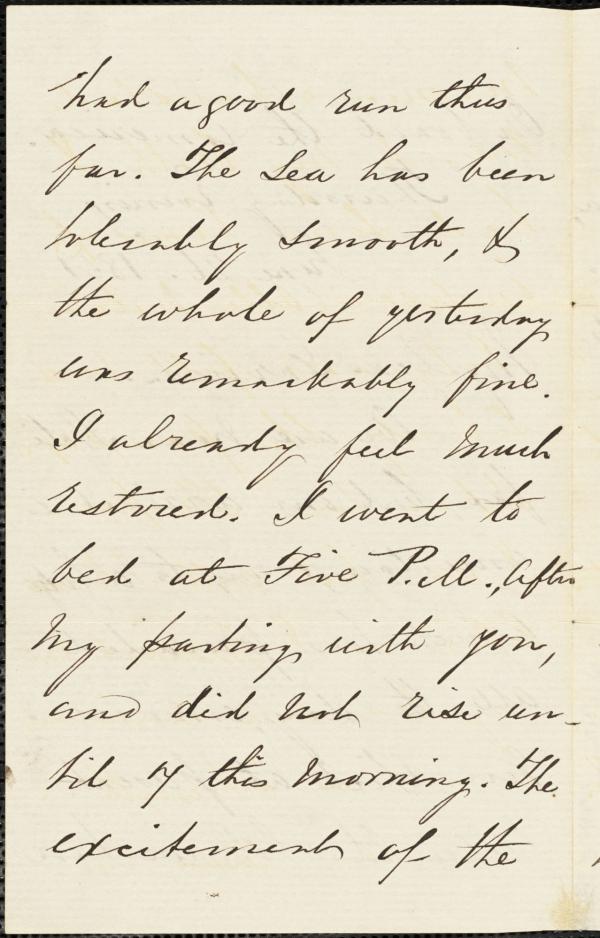 had a good run thus
far. The Sea has been
tolerably smooth, &
the whole of yesterday
was remarkably fine.
I already feel much
restored. I went to
bed at Five P.M., after
my parting with you,
and did not rise un-
til 7 this morning. The
excitement of the